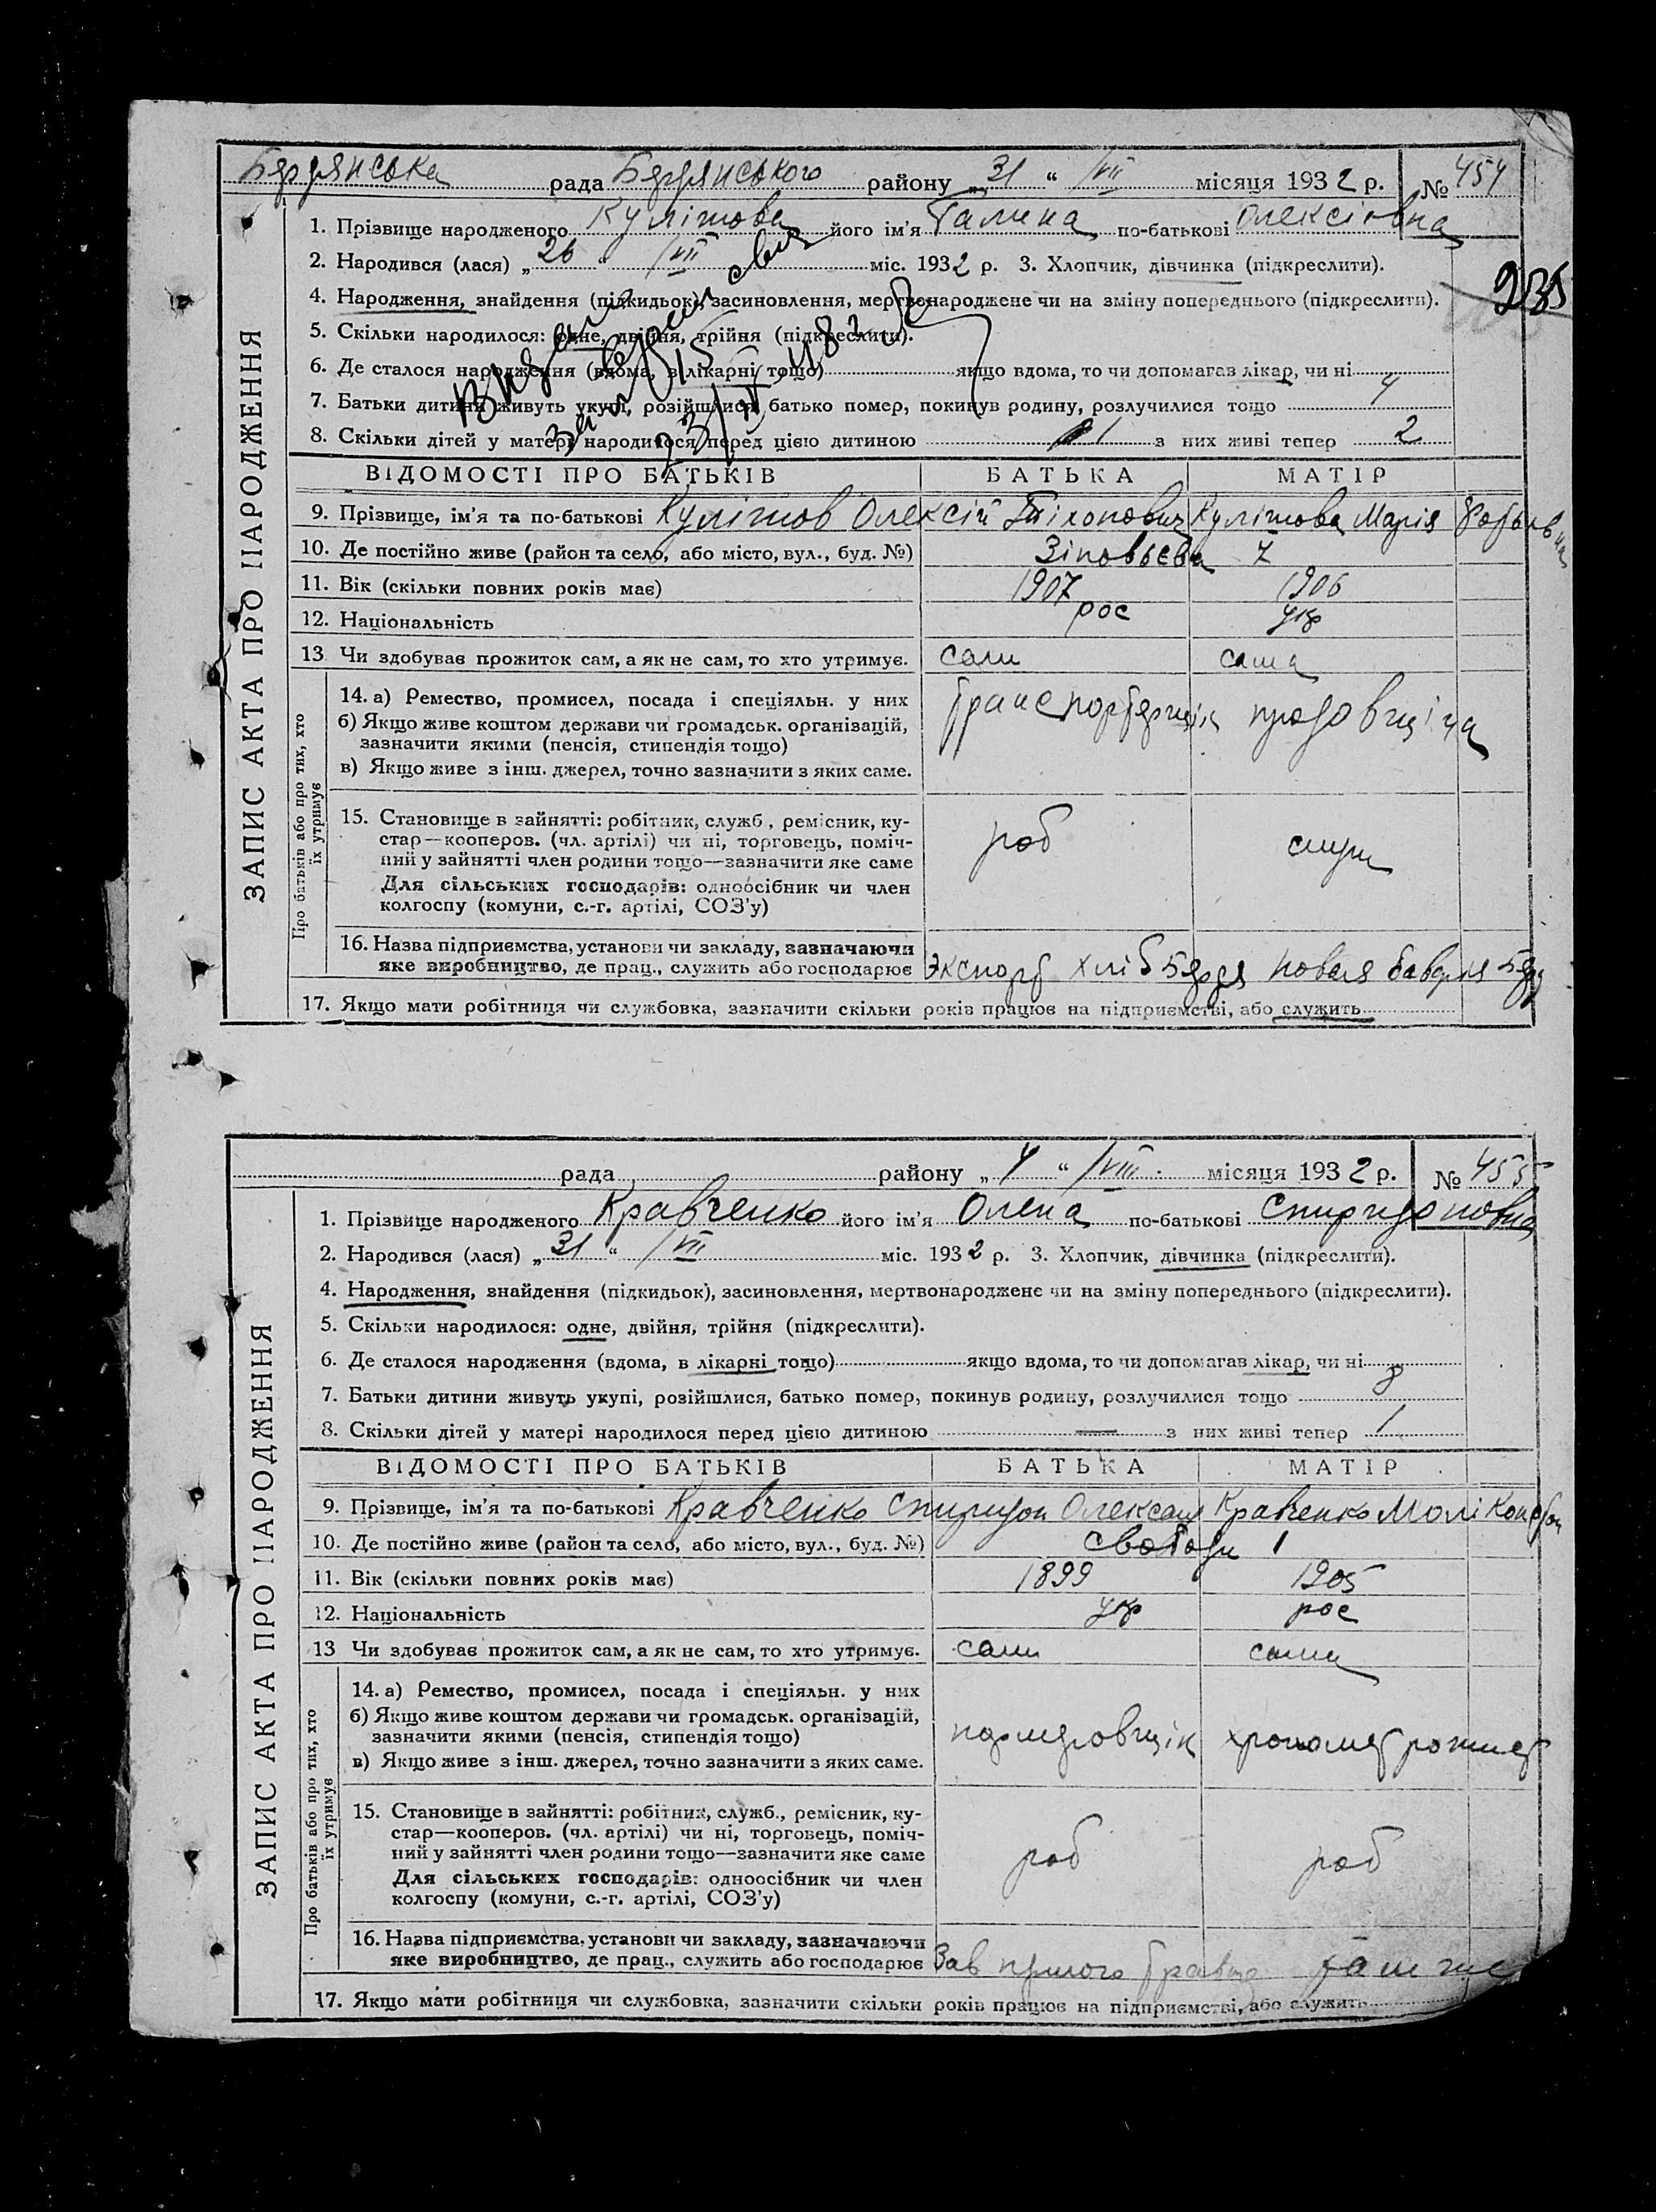 Бердянська рада Бердянського району „31“ /VII місяця 1932 р. № 454
ЗАПИС АКТА ПРО НАРОДЖЕННЯ
1. Прізвище народженого Кулітова його ім'я Галина по-батькові Олексіївна
2. Народився (лася) „26“ /VII міс. 1932 р. 3. Хлопчик, дівчинка (підкреслити).
4. Народження, знайдення (підкидьок), засиновлення, мертвонароджене чи на зміну попереднього (підкреслити).
235
5. Скільки народилося: одне, двійня, трійня (підкреслити).
6. Де сталося народження (вдома, в лікарні тощо) якщо вдома, то чи допомагав лікар, чи ні
7. Батьки дитини живуть укупі, розійшлися, батько помер, покинув родину, розлучилися тощо у
8. Скільки дітей у матері народилося перед цією дитиною 1 з них живі тепер 2
ВІДОМОСТІ ПРО БАТЬКІВ БАТЬКА МАТІР
9. Прізвище, ім'я та по-батькові Кулітов Олексій Тіхонович Кулітова Марія
10. Де постійно живе (район та село, або місто, вул., буд. №) Зіновьєва 7
11. Вік (скільки повних років має) 1907 1906
12. Національність рос укр
13 Чи здобував прожиток сам, а як не сам, то хто утримує. сам сама
Про батьків або про тих, хто їх утримує
14. а) Ремество, промисел, посада і спеціяльн. у них
б) Якщо живе коштом держави чи громадськ. організацій,
зазначити якими (пенсія, стипендія тощо)
в) Якщо живе з інш. джерел, точно зазначити з яких саме.
транспортерщік продовщіца
15. Становище в зайнятті: робітник, служб., ремісник, ку-
стар—кооперов. (чл. артілі) чи ні, торговець, поміч-
ний у зайнятті член родини тощо—зазначити яке саме
Для сільських господарів: одноосібник чи член
колгоспу (комуни, с.-г. артілі, СОЗ'у)
роб служ
16. Назва підприємства, установи чи закладу, зазначаючи
яке виробництво, де прац., служить або господарює Экспорт хліб Новая бавария
17. Якщо мати робітниця чи службовка, зазначити скільки років працює на підприємстві, або служить
рада району „4“ /VIII місяця 1932 р. № 455
ЗАПИС АКТА ПРО НАРОДЖЕННЯ
1. Прізвище народженого Кравченко його ім'я Олена по-батькові Спиридоновна
2. Народився (лася) „31“ /VII міс. 1932 р. 3. Хлопчик, дівчинка (підкреслити).
4. Народження, знайдення (підкидьок), засиновлення, мертвонароджене чи на зміну попереднього (підкреслити).
5. Скільки народилося: одне, двійня, трійня (підкреслити).
6. Де сталося народження (вдома, в лікарні тощо) якщо вдома, то чи допомагав лікар, чи ні
7. Батьки дитини живуть укупі, розійшлися, батько помер, покинув родину, розлучилися тощо у
8. Скільки дітей у матері народилося перед цією дитиною — з них живі тепер 1
ВІДОМОСТІ ПРО БАТЬКІВ БАТЬКА МАТІР
9. Прізвище, ім'я та по-батькові Кравченко Спиридон Олексан Кравченко
10. Де постійно живе (район та село, або місто, вул., буд. №) Свободи 1
11. Вік (скільки повних років має) 1899 1905
12. Національність укр рос
13 Чи здобував прожиток сам, а як не сам, то хто утримує. сам сама
Про батьків або про тих, хто їх утримує
14. а) Ремество, промисел, посада і спеціяльн. у них
б) Якщо живе коштом держави чи громадськ. організацій,
зазначити якими (пенсія, стипендія тощо)
в) Якщо живе з інш. джерел, точно зазначити з яких саме.
нормеровщік
15. Становище в зайнятті: робітник, служб., ремісник, ку-
стар—кооперов. (чл. артілі) чи ні, торговець, поміч-
ний у зайнятті член родини тощо—зазначити яке саме
Для сільських господарів: одноосібник чи член
колгоспу (комуни, с.-г. артілі, СОЗ'у)
роб роб
16. Назва підприємства, установи чи закладу, зазначаючи
яке виробництво, де прац., служить або господарює Зав
17. Якщо мати робітниця чи службовка, зазначити скільки років працює на підприємстві, або служить